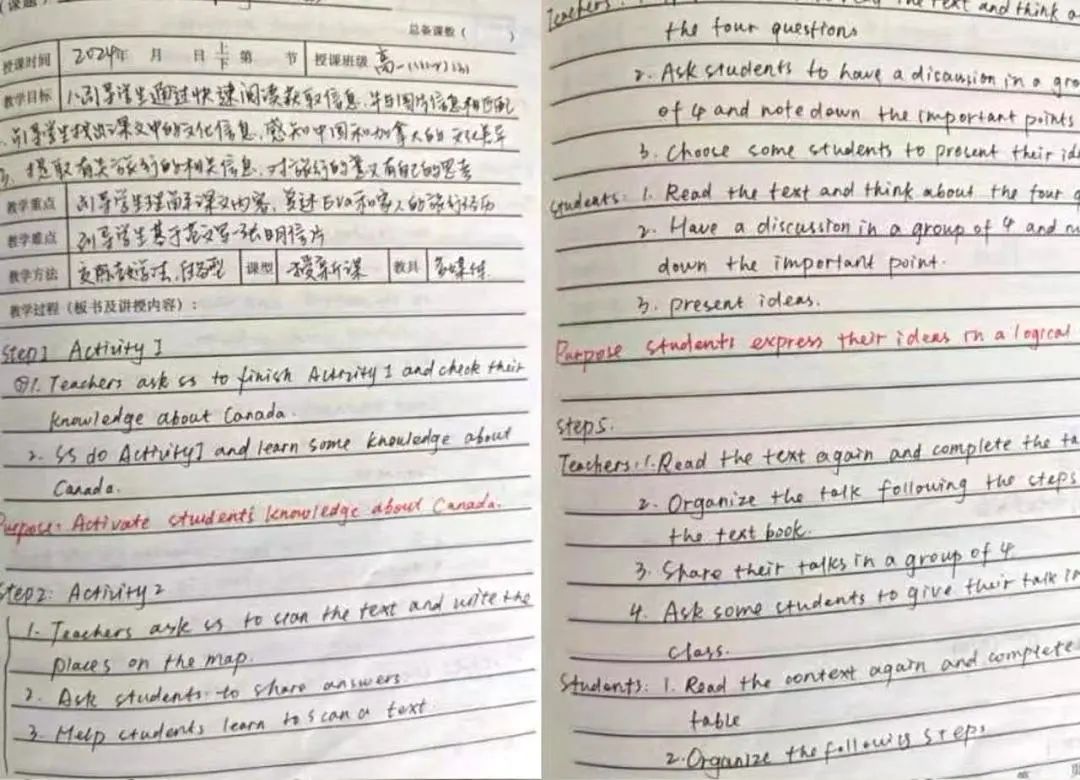 (课题)
总备课数( )
授课时间 2024年 月 日 上 下 第 节 授课班级 高一
教学目标 1.引导学生通过快速阅读获取信息,并与图片信息相匹配
引导学生找出课文中的文化信息,感知中国和加拿大的文化差异
3. 提取有关旅行的相关信息,对旅行的意义有自己的思考
教学重点 引导学生提前课文内容,复述Eva和家人的旅行经历
教学难点 引导学生基于范文写一张明信片
教学方法 交际教学法, 课型 授新课 教具 多媒体
教学过程(板书及讲授内容):
Step1 Activity 1
1. Teachers ask ss to finish Activity 1 and check their
knowledge about Canada.
2. SS do Activity 1 and learn some knowledge about
Canada.
Purpose: Activate students knowledge about Canada.
Step2: Activity 2
1. Teachers ask ss to scan the text and write the
places on the map.
2. Ask students to share answers.
3. Help students learn to scan a text.
Teachers: 1. the text and think a
the four questions
2. Ask students to have a discussion in a gro
of 4 and note down the important points
3. Choose some students to present their ide
Students: 1. Read the text and think about the four q
2. Have a discussion in a group of 4 and n
down the important point.
3. present ideas.
Purpose students express their ideas in a logical
Step5.
Teachers: 1. Read the text again and complete the ta
2. Organize the talk following the steps
the text book.
3. Share their talks in a group of 4
4. Ask some students to give their talk in
class.
Students: 1. Read the context again and complete
table
2. Organize the following steps